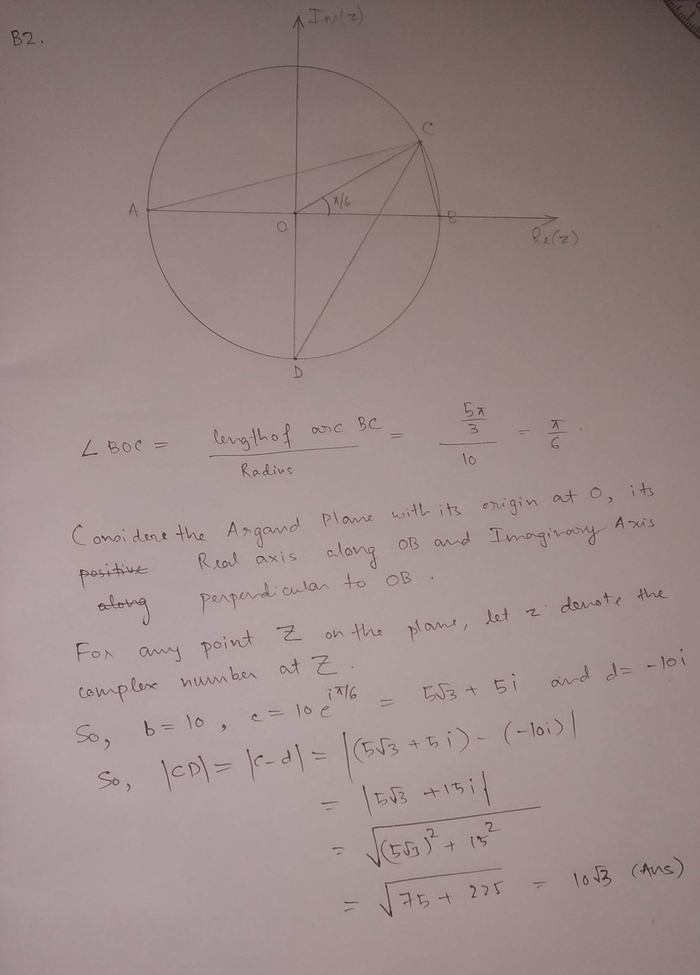 B2.
Im(z)
C
A
π/6
O
B
Re(z)
D
∠BOC = length of arc BC / Radius = (5π/3) / 10 = π/6.
Considere the Argand Plane with its origin at O, its
positive Real axis along OB and Imaginary Axis
along perpendicular to OB.
For any point Z on the plane, let z denote the
complex number at Z.
So, b = 10, c = 10 e^{iπ/6} = 5√3 + 5i and d = -10i
So, |CD| = |c-d| = |(5√3 + 5i) - (-10i)|
= |5√3 + 15i|
= √((5√3)² + 15²)
= √(75 + 225) = 10√3 (Ans)